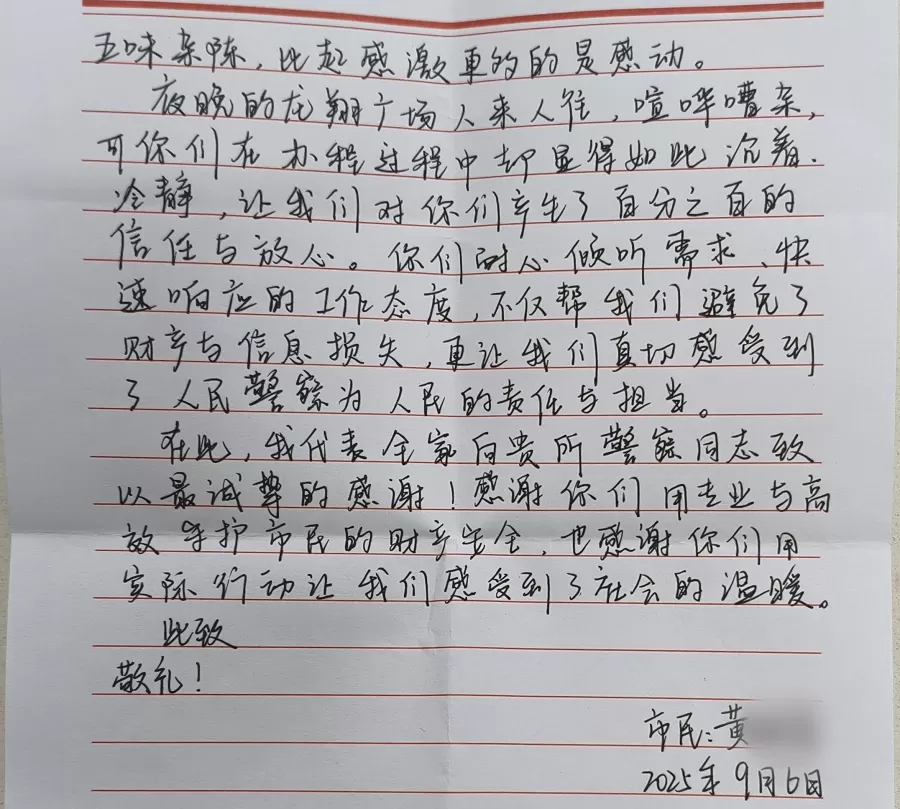 五味杂陈，比起感激更多的是感动。
夜晚的龙翔广场人来人往，喧哗嘈杂，
可你们在办程过程中却显得如此沉着、
冷静，让我们对你们产生了百分之百的
信任与放心。你们耐心倾听需求、快
速响应的工作态度，不仅帮我们避免了
财产与信息损失，更让我们真切感受到
了人民警察为人民的责任与担当。
在此，我代表全家向贵所警察同志致
以最诚挚的感谢！感谢你们用专业与高
效守护市民的财产安全，也感谢你们用
实际行动让我们感受到了社会的温暖。
此致
敬礼！
市民：黄
2025年9月6日